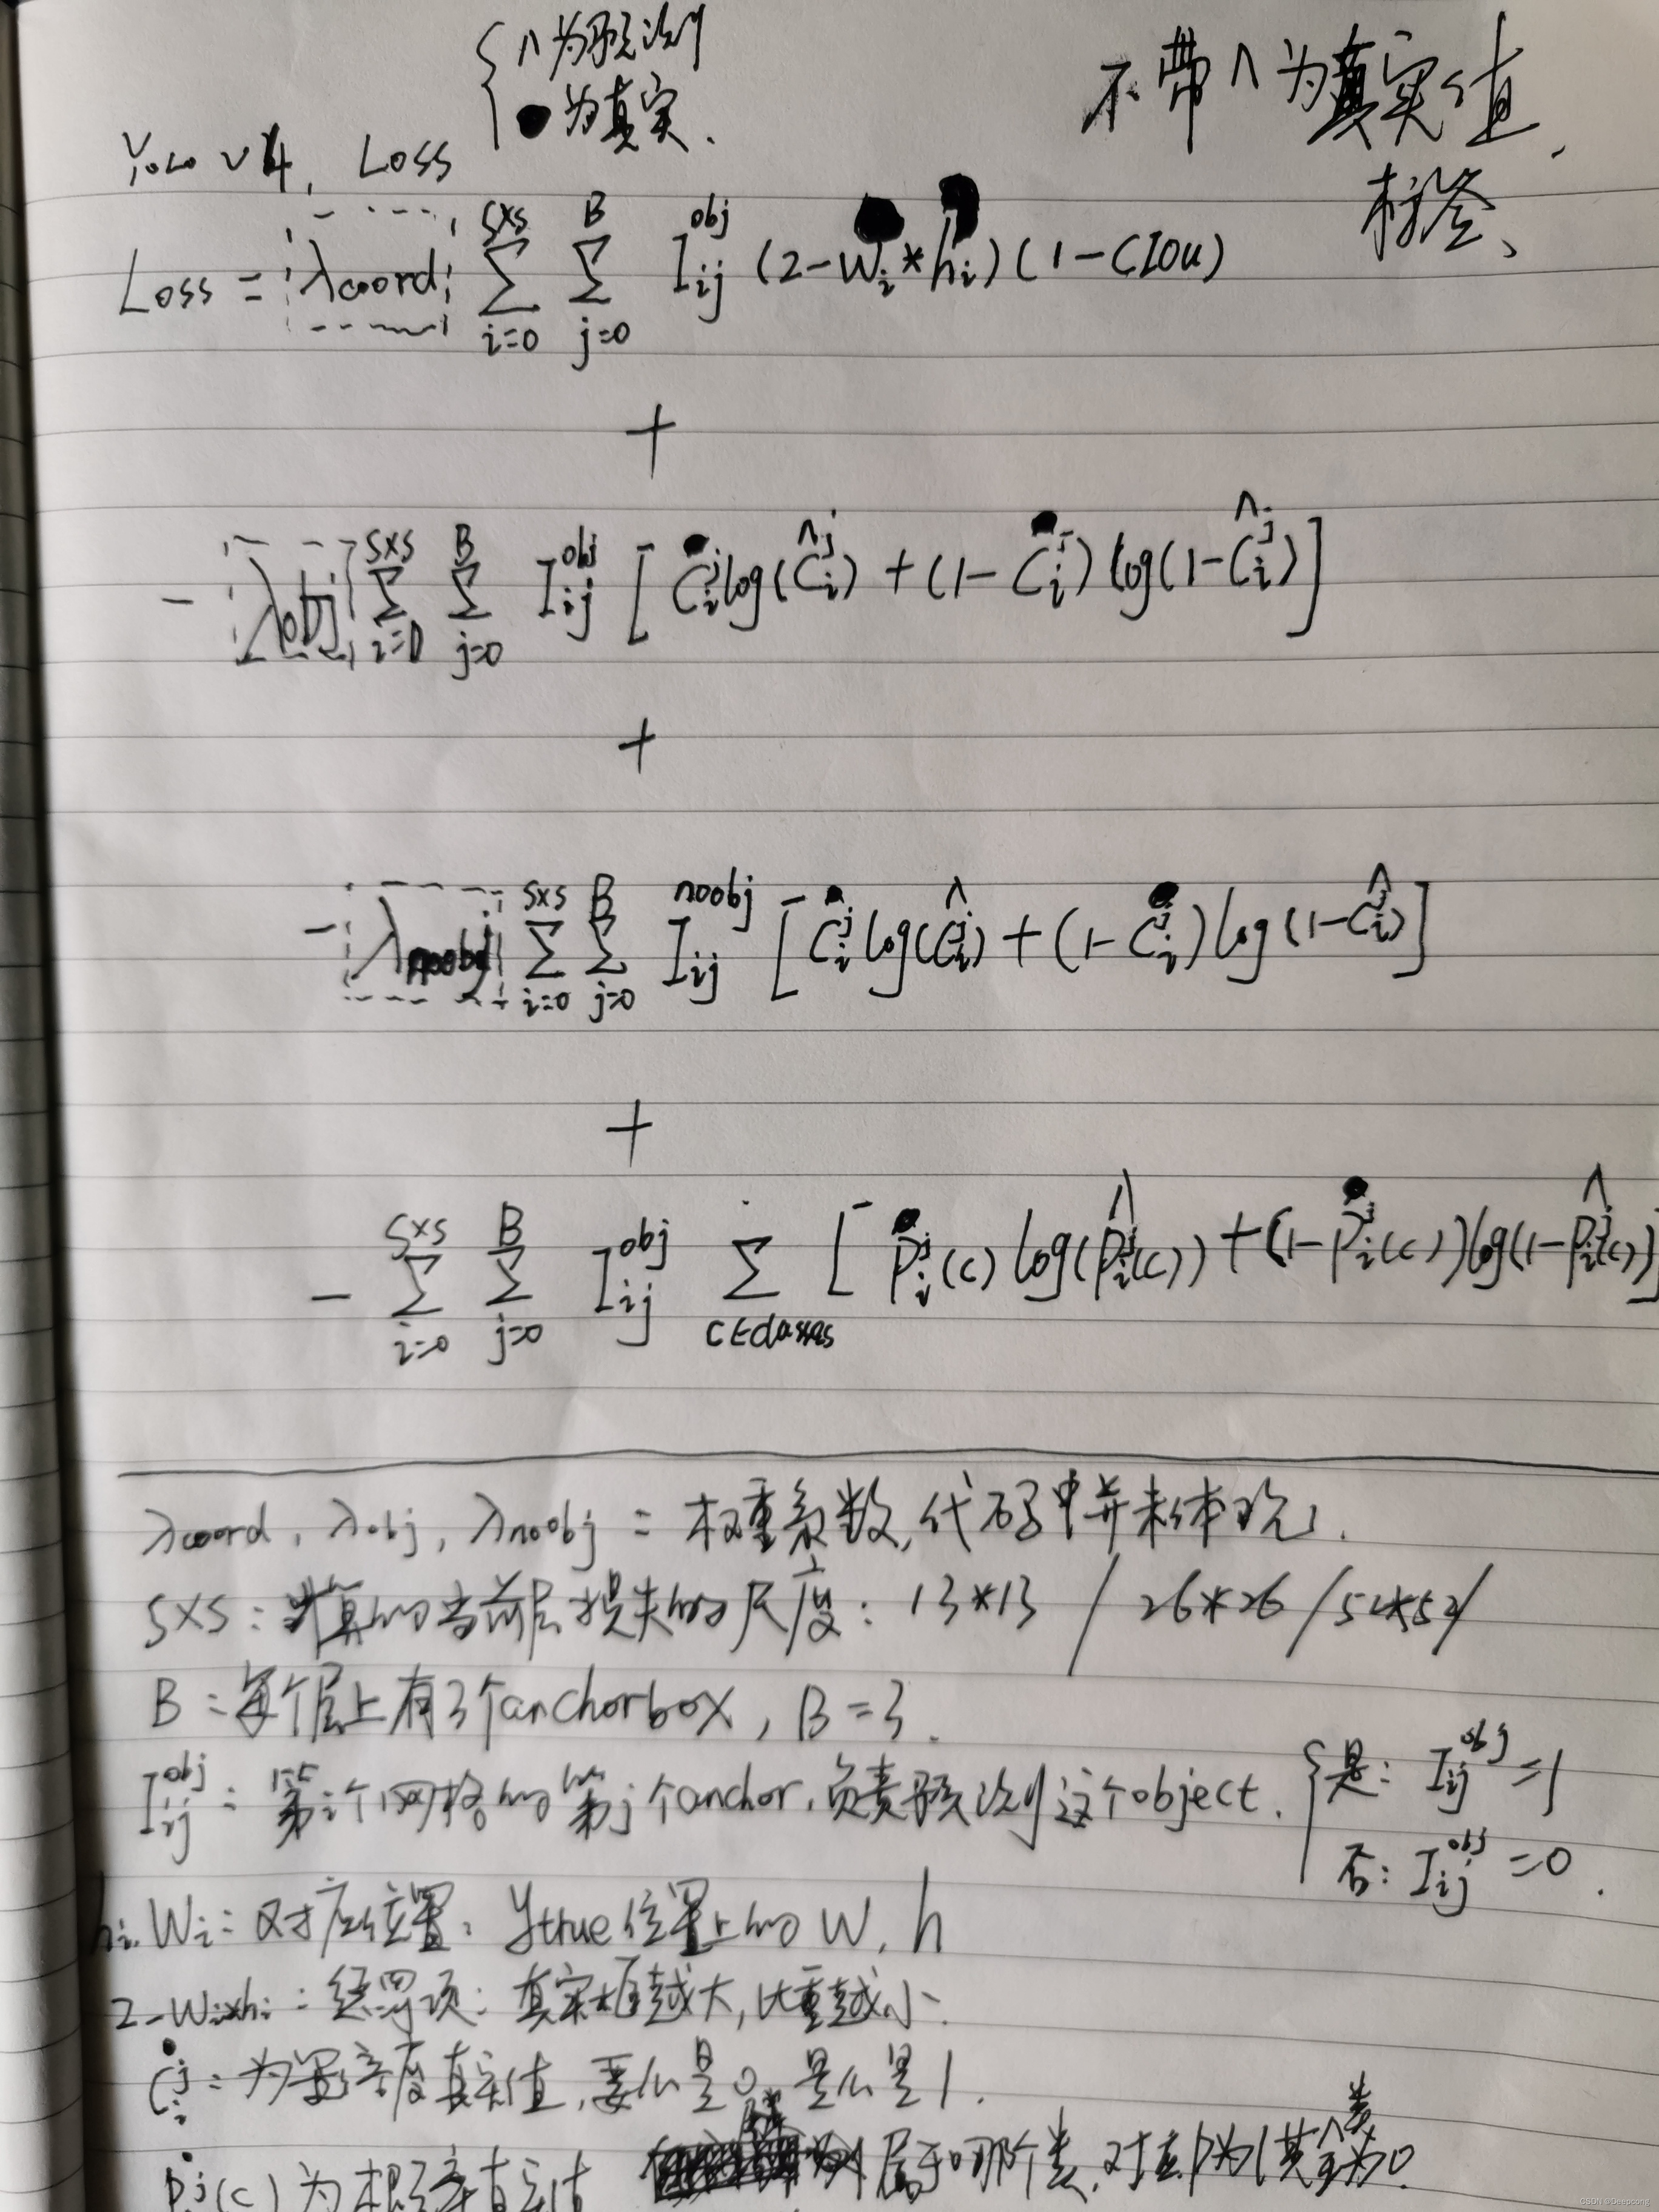 {∧为预测
●为真实.
不带∧为真实值,
标签、
Yolo v4, Loss
Loss = λcoord \sum_{i=0}^{S×S} \sum_{j=0}^{B} I_{ij}^{obj} (2-w_i*h_i)(1-CIOU)
+
- λobj \sum_{i=0}^{S×S} \sum_{j=0}^{B} I_{ij}^{obj} [\dot{C}_i^j log(\hat{C}_i^j) + (1-\dot{C}_i^j) log(1-\hat{C}_i^j)]
+
- λnoobj \sum_{i=0}^{S×S} \sum_{j=0}^{B} I_{ij}^{noobj} [\dot{C}_i^j log(\hat{C}_i^j) + (1-\dot{C}_i^j) log(1-\hat{C}_i^j)]
+
- \sum_{i=0}^{S×S} \sum_{j=0}^{B} I_{ij}^{obj} \sum_{c∈classes} [\dot{P}_i^j(c) log(\hat{P}_i^j(c)) + (1-\dot{P}_i^j(c)) log(1-\hat{P}_i^j(c))]
λcoord, λobj, λnoobj = 权重系数,代码中并未体现.
S×S: 计算的当前层损失的尺度: 13*13 / 26*26 / 52*52
B: 每个层上有3个anchorbox, B=3.
I_{ij}^{obj}: 第i个网格的第j个anchor,负责预测这个object. {是: I_{ij}^{obj}=1
否: I_{ij}^{obj}=0.
hi. Wi: 对应位置, ytrue位置上的 w, h
2-Wi×hi: 惩罚项: 真实框越大,比重越小.
\dot{C}_i^j: 为置信度真实值,要么是0 是么是1.
P^j(c) 为概率真实值 属于哪个类,对应P为1其他类为0.
CSDN @Deepcong